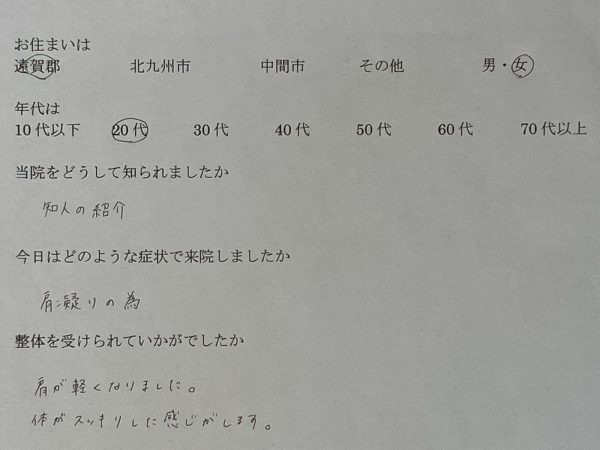 お住まいは
遠賀郡 北九州市 中間市 その他 男・女
年代は
10代以下 20代 30代 40代 50代 60代 70代以上
当院をどうして知られましたか
知人の紹介
今日はどのような症状で来院しましたか
肩凝りの為
整体を受けられていかがでしたか
肩が軽くなりました。
体がスッキリした感じがします。